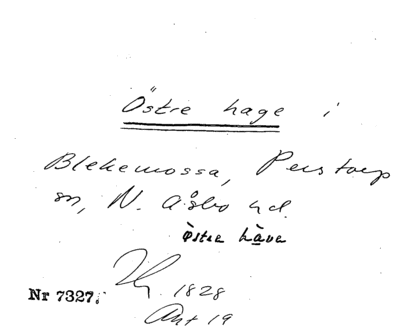 Östre hage i
Blekemossa, Perstorp
sn, N. Åsbo hd.
òstra hàva
Nr 7327. 1828
Akt 19